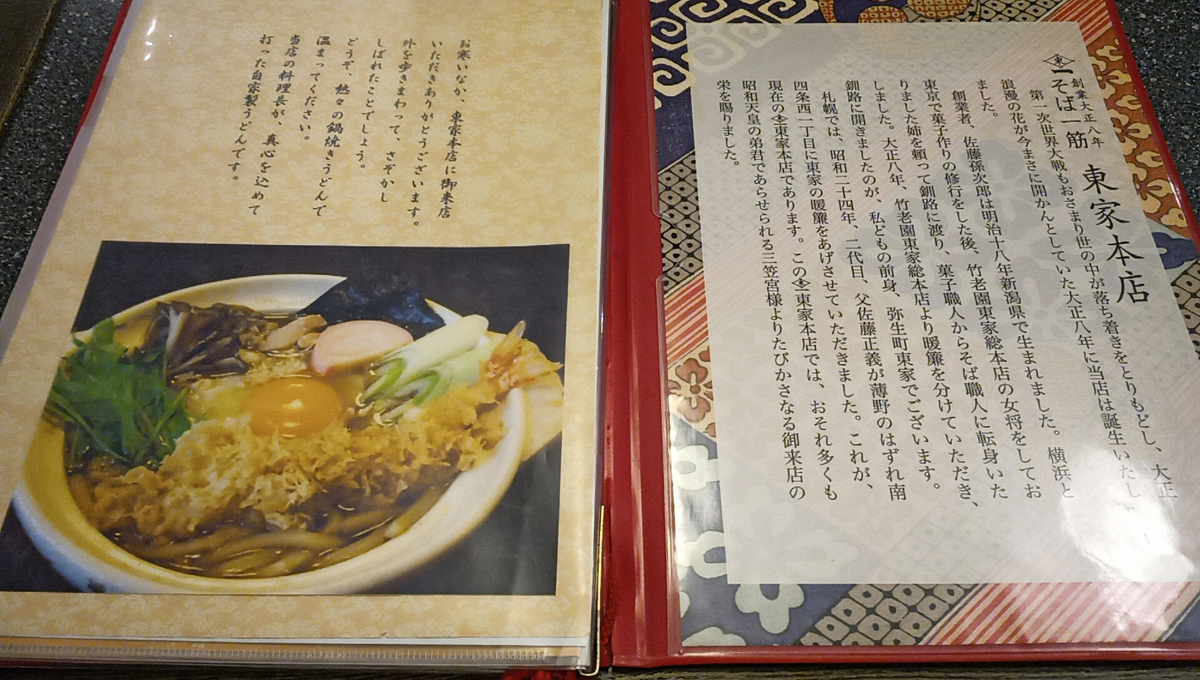 お寒いなか、東家本店に御来店
いただきありがとうございます。
外を歩きまわって、さぞかし
しばれたことでしょう。
どうぞ、熱々の鍋焼きうどんで
温まってください。
当店の料理長が、真心を込めて
打った自家製うどんです。
創業大正八年
そば一筋 東家本店
第一次世界大戦もおさまり世の中が落ち着きをとりもどし、大正
浪漫の花が今まさに開かんとしていた大正八年に当店は誕生いたし
ました。
創業者、佐藤孫次郎は明治十八年新潟県で生まれました。横浜と
東京で菓子作りの修行をした後、竹老園東家総本店の女将をしてお
りました姉を頼って釧路に渡り、菓子職人からそば職人に転身いた
しました。大正八年、竹老園東家総本店より暖簾を分けていただき、
釧路に開きましたのが、私どもの前身、弥生町東家でございます。
札幌では、昭和二十四年、二代目、父佐藤正義が薄野のはずれ南
四条西一丁目に東家の暖簾をあげさせていただきました。これが、
現在の東家本店であります。この東家本店では、おそれ多くも
昭和天皇の弟君であらせられる三笠宮様よりたびかさなる御来店の
栄を賜りました。